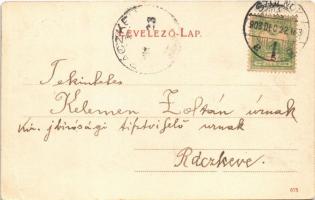 LEVELEZŐ-LAP.
RÁCZKEVE
908 DEC 22
Tekintetes
Kelemen Zoltán úrnak
kir. jbirósági tisztviselő urnak
Ráczkeve.